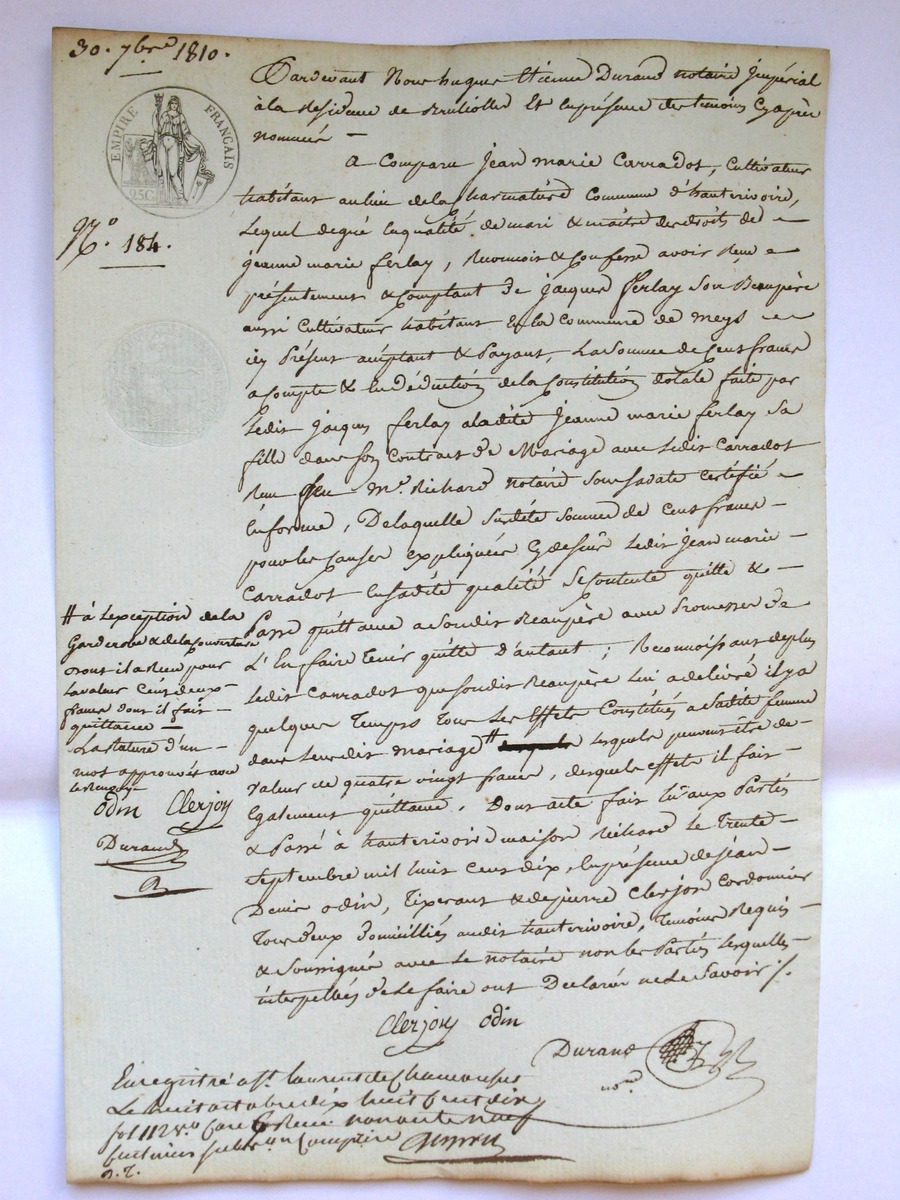 30. 7bre 1810.
EMPIRE FRANÇAIS
25C.
N.o 184.
Pardevant Nous hugues Etienne Durand notaire Impérial
à la Residence de Brullioles Et en présence des temoins Cy après
nommés —
a Comparu Jean marie Carradot, Cultivateur
habitant au lieu de la Commune d'hauterivoire,
Lequel de gré en qualité de mari & maitre des droits de
jeanne marie ferlay, Reconnoit & Confesse avoir Recu
présentement & Comptant de jacques ferlay Son Beaupère
aussi Cultivateur habitant En la Commune de meys
icy Présent acceptant & Payant, La Somme de Cent francs
a Compte & En déduction de la Constitution dotale faite par
Ledit jacques ferlay a ladite Jeanne marie ferlay Sa
fille dans Son Contrat de Mariage avec Ledit Carradot
Recu Me. Richard notaire Sous Sa date Certifié
En forme, De laquelle Susdite Somme de Cent francs —
pour les Causes expliquées Cy dessus Ledit Jean marie —
Carradot En Sadite qualité Se Contente quitte & —
Passe quittance a Sondit Beaupère avec Promesse de
L'En faire Tenir quitte D'autant ; Reconnoissant de plus
Ledit Carradot que Sondit Beaupère Lui a delivré il y a
quelques Temps Tous Les Effets Constitués a Sadite femme
dans Leurdit mariage # lesquels peuvent être de
valeur de quatre vingt francs, desquels effets il fait —
Egalement quittance. Dont acte fait lu aux Parties
& Passé à hauterivoire maison Richard Le Trente —
Septembre mil huit Cent dix, En présence de jean
Denis Odin, Tixerant & de pierre Clerjon Cordonnier
Tous deux Domiciliés audit hauterivoire, Temoins Requis
& Soussignés avec Le notaire non les Parties Lesquelles —
interpellées de Le faire ont Declaré ne Le Savoir ./.
# à L'exception de la
Garderobe & de la Couverture
dont il a Recu pour
La valeur Cent deux
francs dont il fait —
quittance —
La Rature d'un
mot approuvée avec
le Renvoy
Odin Clerjon
Durand
Clerjon Odin
Durand
no.re
Enregistré a St. laurent de Chamousset
Le huit octobre dix huit Cent dix
fol 112 V.o Case 6 Recu nonante neuf
Centimes Subvention Comprise